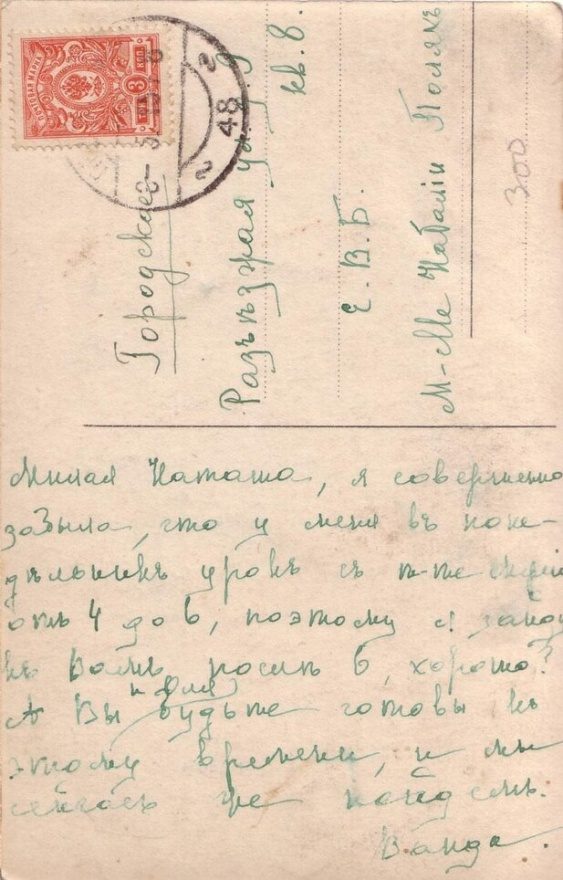 ПОЧТОВАЯ МАРКА
3 КОП
48
Городское
Разъѣзжая ул. д. 9
кв. 8.
Е. В. Б.
М-elle Наталіи Полякъ
300
Милая Наташа, я совершенно
забыла, что у меня въ поне-
дѣльникъ урокъ съ
отъ 4 до 6, поэтому я зайду
къ Вамъ росит 6, хорошо?
А Вы и Оля будьте готовы къ
этому времени, и мы
сейчасъ же пойдемъ.
Ванда.